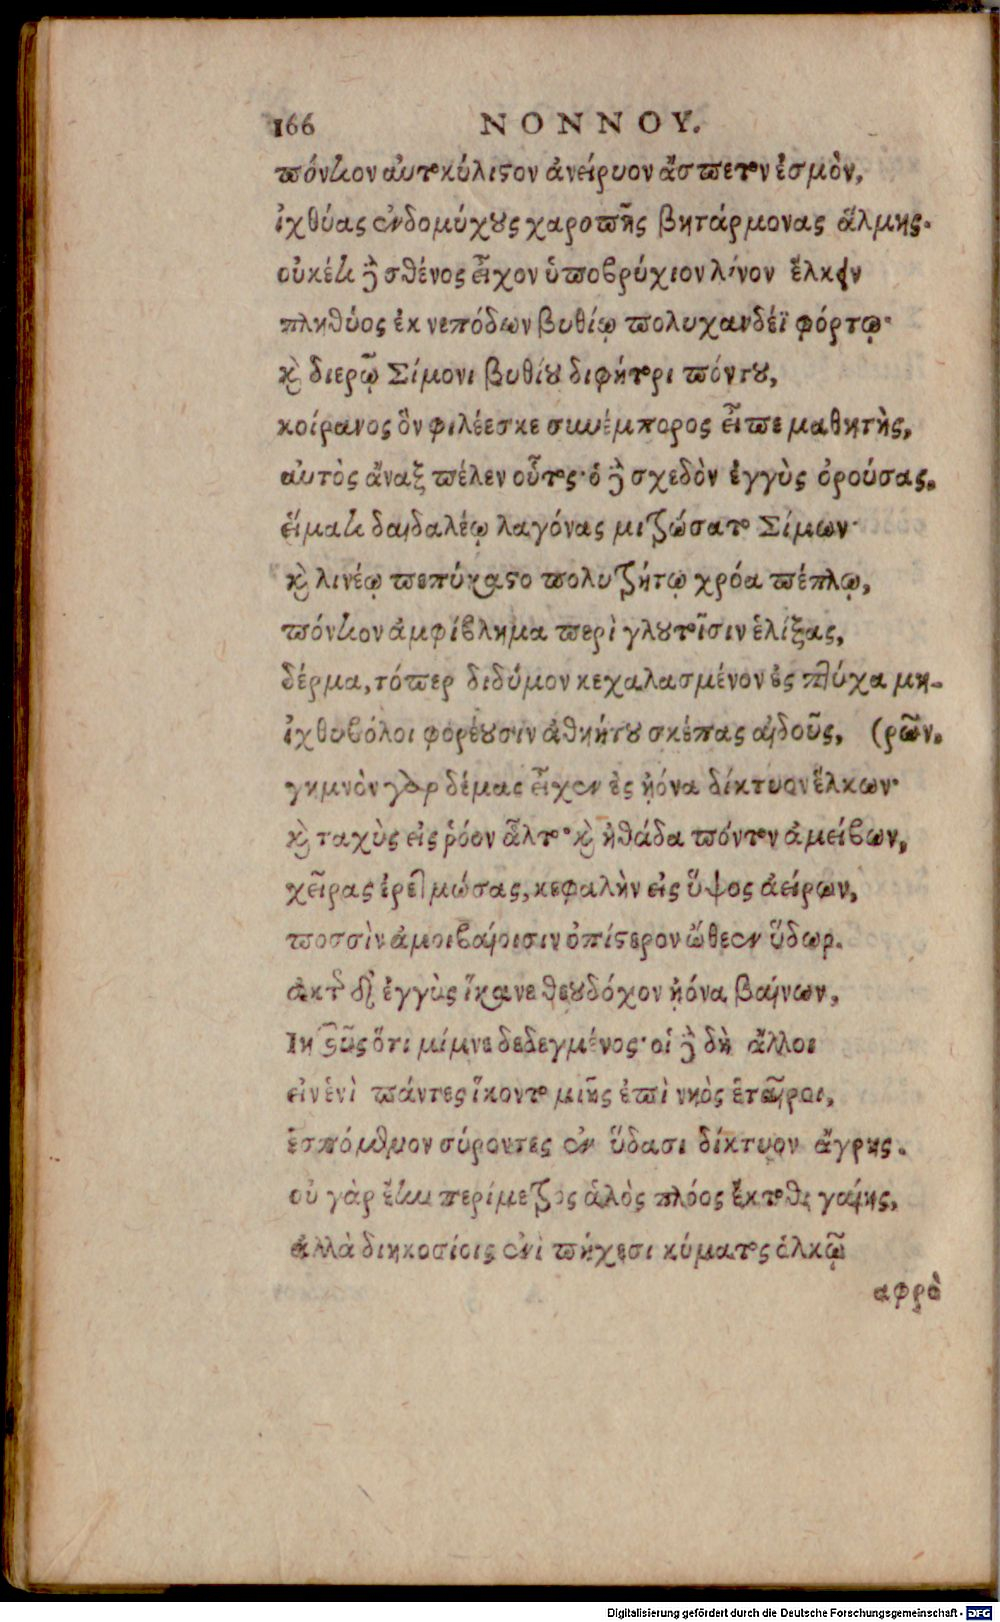 166 ΝΟΝΝΟΥ.
πόντιον αὐτοκύλιστον ἀνείρυον ἄσπετον ἑσμὸν,
ἰχθύας ἐνδομύχους χαροπῆς βητάρμονας ἅλμης.
οὐκέτι ἢ σθένος εἶχον ὑποβρύχιον λίνον ἕλκειν
πληθύος ἐκ νεπόδων βυθίῳ πολυχανδέϊ φόρτῳ·
καὶ διερῷ Σίμονι βυθίου διφήτορι πόντου,
κοίρανος ὃν φιλέεσκε συνέμπορος εἶπε μαθητὴς,
αὐτὸς ἄναξ πέλεν οὗτος· ὁ ἢ σχεδὸν ἐγγὺς ὀρούσας.
εἵματι δαιδαλέῳ λαγόνας μιζώσατο Σίμων·
καὶ λινέῳ πεπύκαστο πολυζήτῳ χρόα πέπλῳ,
πόντιον ἀμφίβλημα περὶ γλουτοῖσιν ἑλίξας,
δέρμα, τόπερ διδύμον κεχαλασμένον ἐς πτύχα μη-
ἰχθυβόλοι φορέουσιν ἀθηήτου σκέπας αἰδοῦς, (ρῶν.
γυμνὸν γὰρ δέμας εἶχεν ἐς ᾐόνα δίκτυον ἕλκων·
καὶ ταχὺς εἰς ῥόον ἆλτο· καὶ ἠθάδα πόντον ἀμείβων,
χεῖρας ἐρετμώσας, κεφαλὴν εἰς ὕψος ἀείρων,
ποσσὶν ἀμοιβαίοισιν ὀπίστερον ὤθεεν ὕδωρ.
ἀκτῆς δ' ἐγγὺς ἵκανε θεουδόχον ᾐόνα βαίνων,
Ἰησοῦς ὅτι μίμνε δεδεγμένος· οἱ ἢ δὴ ἄλλοι
εἰν ἑνὶ πάντες ἵκοντο μιῆς ἐπὶ νηὸς ἑταῖροι,
ἑσπόμενον σύροντες ἐν ὕδασι δίκτυον ἄγρης.
οὐ γὰρ ἔην περίμετρος ἁλὸς πλόος ἔκτοθι γαίης,
ἀλλὰ διηκοσίοις ἐνὶ πήχεσι κύματος ὁλκῷ
αφρὸ
Digitalisierung gefördert durch die Deutsche Forschungsgemeinschaft - DFG